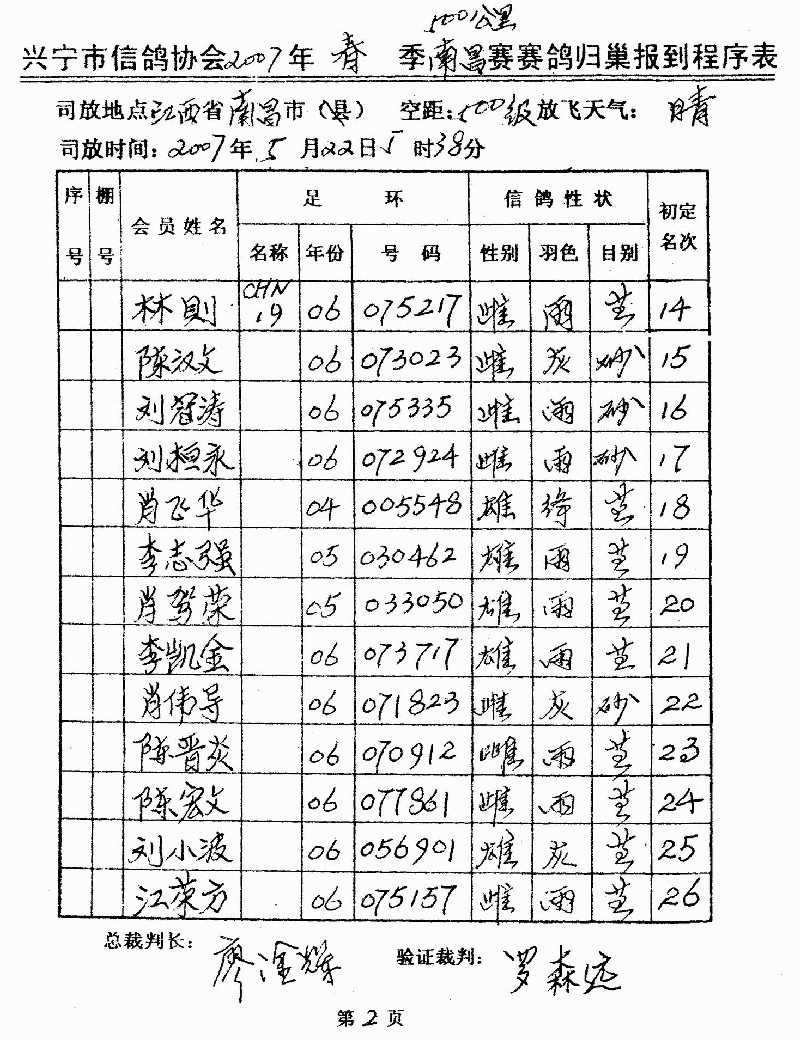 500公里
兴宁市信鸽协会2007年 春 季南昌赛赛鸽归巢报到程序表
司放地点江西省南昌市(县) 空距:500级放飞天气: 晴
司放时间:2007年5月22日5时38分
序号 棚号 会员姓名 足环 信鸽性状 初定名次
名称 年份 号码 性别 羽色 目别
林则 CHN19 06 075217 雌 雨 黄 14
陈汉文 06 073023 雌 灰 砂 15
刘冠涛 06 075335 雌 雨 砂 16
刘桓永 06 072924 雌 雨 砂 17
肖飞华 04 005548 雄 绛 黄 18
李志强 05 030462 雄 雨 黄 19
肖驾荣 05 033050 雄 雨 黄 20
李凯金 06 073717 雄 雨 黄 21
肖伟导 06 071823 雌 灰 砂 22
陈晋炎 06 070912 雌 雨 黄 23
陈宏文 06 077861 雌 雨 黄 24
刘小波 06 056901 雄 灰 黄 25
江荣方 06 075157 雌 雨 黄 26
总裁判长: 廖淦辉 验证裁判: 罗森远
第2页